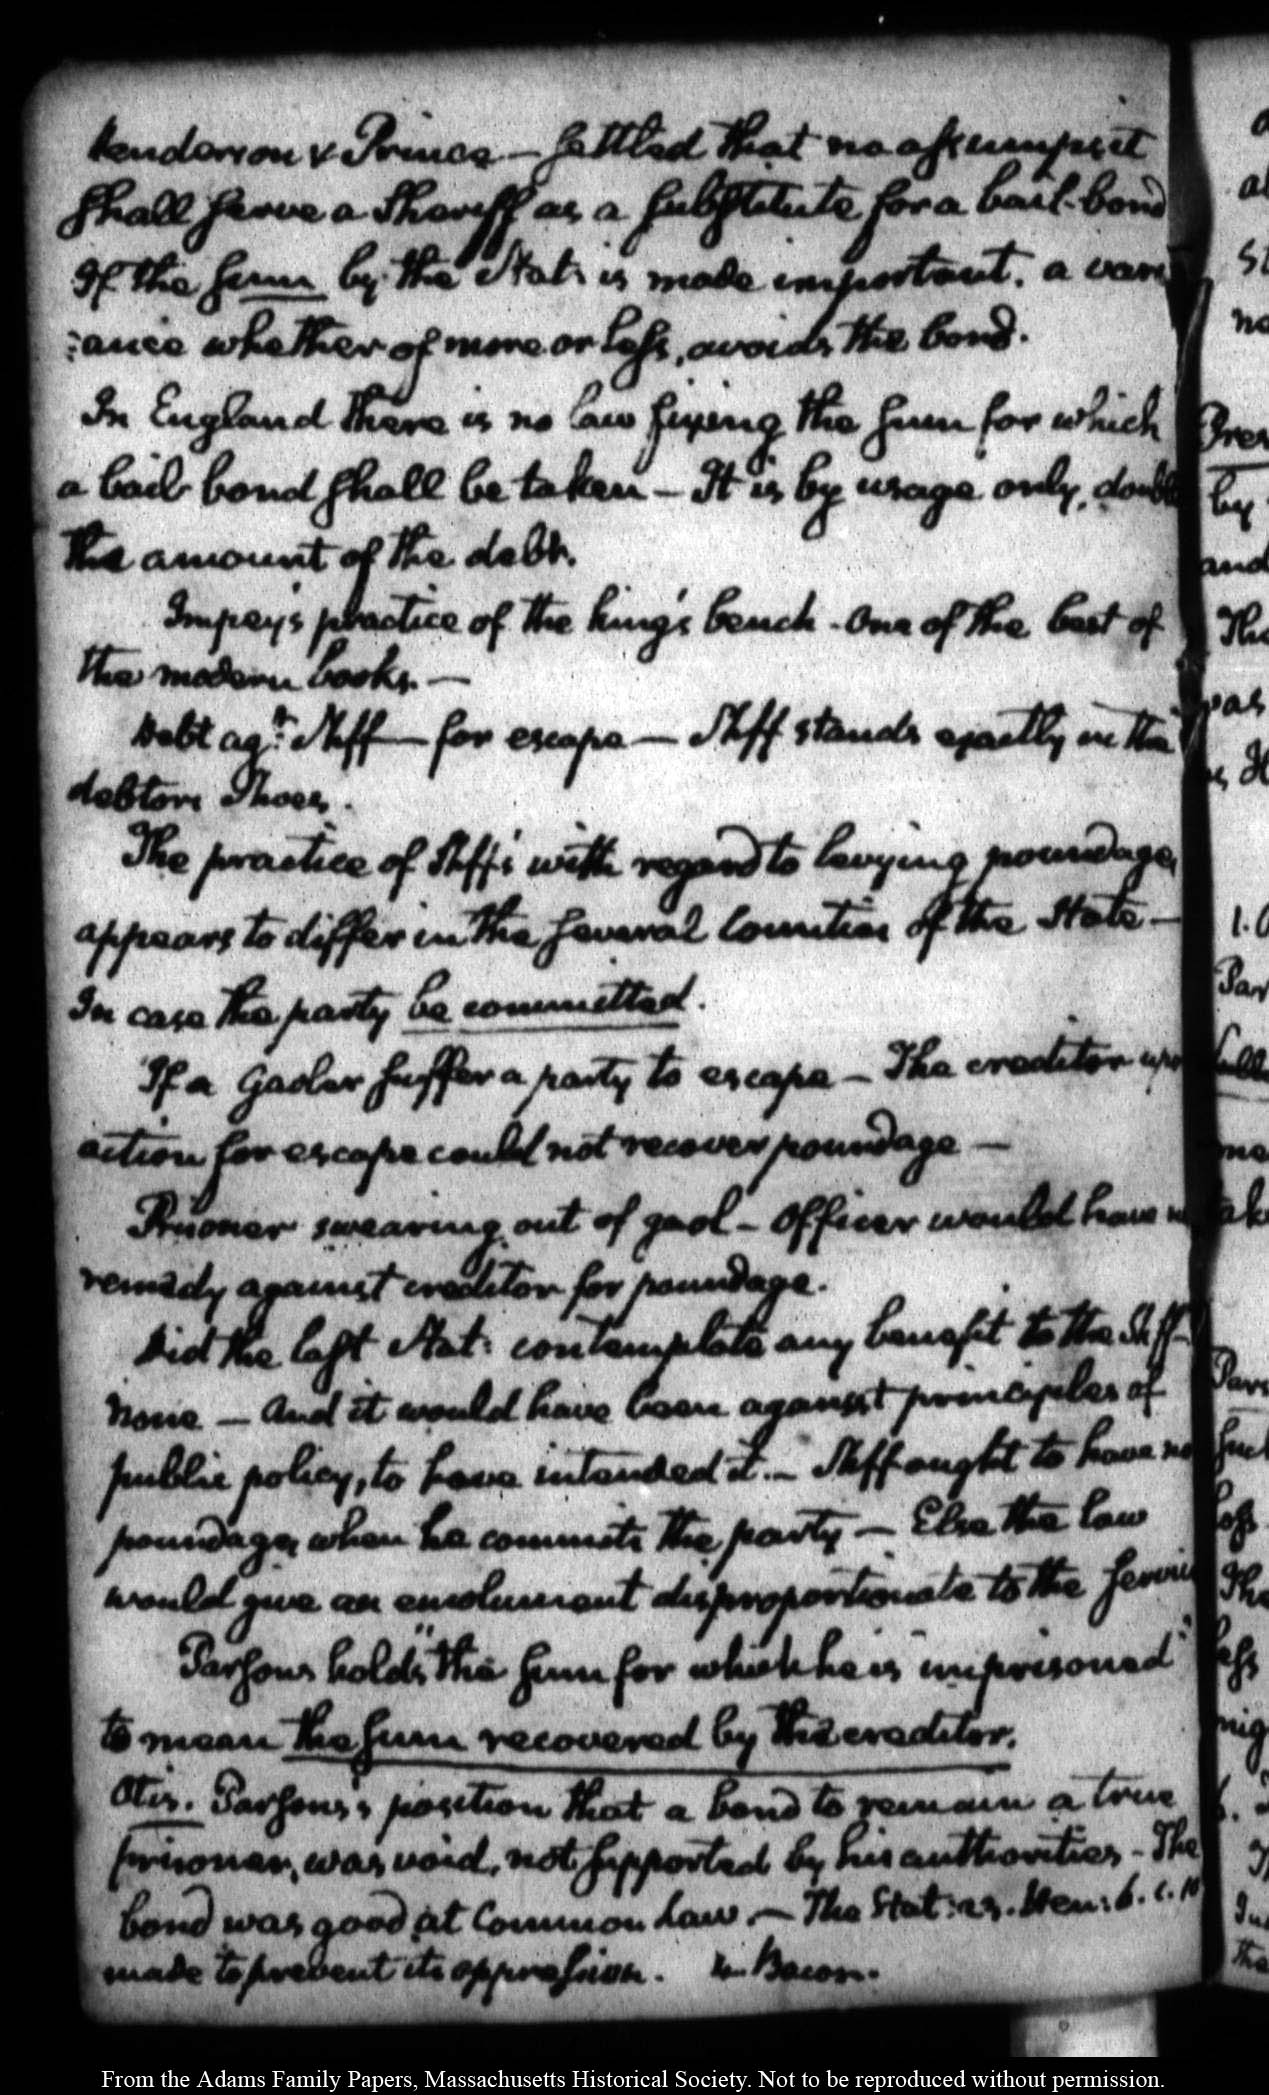 Henderson v Prince — settled that no assumpsit
shall serve a Sheriff as a substitute for a bail-bond
If the sum by the Stat: is made important. a vari
:ance whether of more or less, avoids the bond.
In England there is no law fixing the sum for which
a bail bond shall be taken — It is by usage only, double
the amount of the debt.
Impey's practice of the king's bench - One of the best of
the modern books. —
Debt agt. Shff — for escape — Shff stands exactly in the
debtors Shoes.
The practice of Shff's with regard to levying poundage,
appears to differ in the several Counties of the State —
In case the party be committed.
If a Gaoler suffer a party to escape — The creditor upo
action for escape could not recover poundage —
Prisoner swearing out of gaol — Officer would have n
remedy against creditor for poundage.
Did the last Stat: contemplate any benefit to the Shff—
None — And it would have been against principles of
public policy, to have intended it. — Shff ought to have no
poundage when he commits the party — Else the law
would give an emolument disproportionate to the service
Parsons holds "the sum for which he is imprisoned"
to mean the sum recovered by the creditor.
Otis. Parsons's position that a bond to remain a true
prisoner, was void, not supported by his authorities - The
bond was good at Common Law. — The Stat: 23. Hen: 6. c. 10
made to prevent its oppression. 4 Bacon.
From the Adams Family Papers, Massachusetts Historical Society. Not to be reproduced without permission.